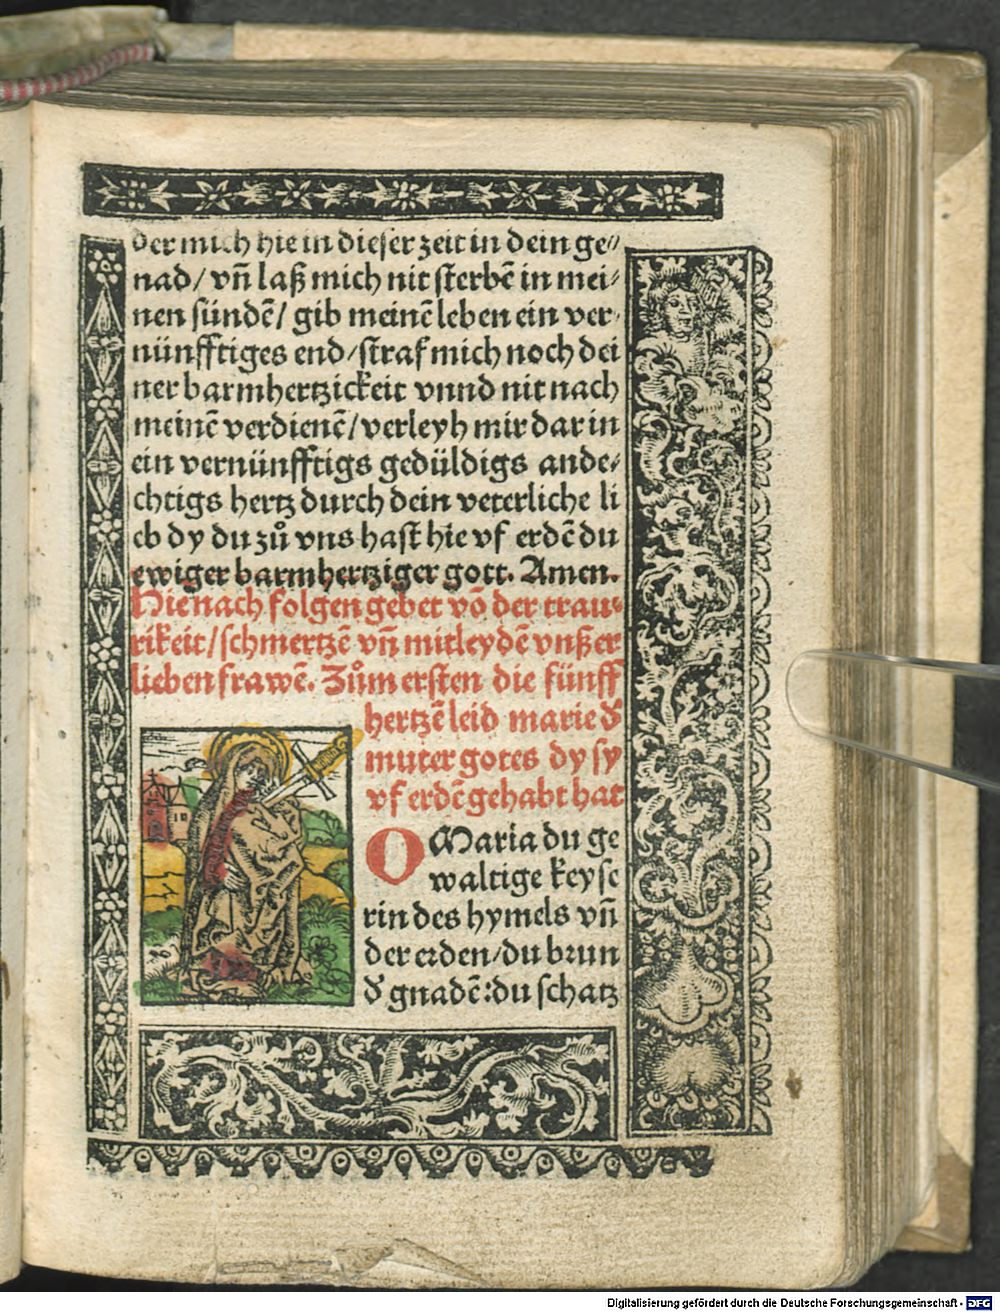 der mich hie in dieser zeit in dein ge⸗
nad/ vñ laß mich nit sterbē in mei⸗
nen sündē/ gib meinē leben ein ver⸗
nünfftiges end/straf mich noch dei
ner barmhertzickeit vnnd nit nach
meinē verdienē/verleyh mir dar in
ein vernünfftigs gedüldigs ande⸗
chtigs hertz durch dein veterliche li
eb dy du zuͦ vns hast hie vf erdē du
ewiger barmhertziger gott. Amen.
Hienach folgen gebet vō der trau⸗
rikeit/schmertzē vñ mitleydē vnßer
lieben frawē. Zuͦm ersten die fünff
hertzē leid marie đ
muter gotes dy sy
vf erdē gehabt hat
O Maria du ge
waltige keyse
rin des hymels vñ
der erden/du brun
đ gnadē:du schatz
Digitalisierung gefördert durch die Deutsche Forschungsgemeinschaft - DFG